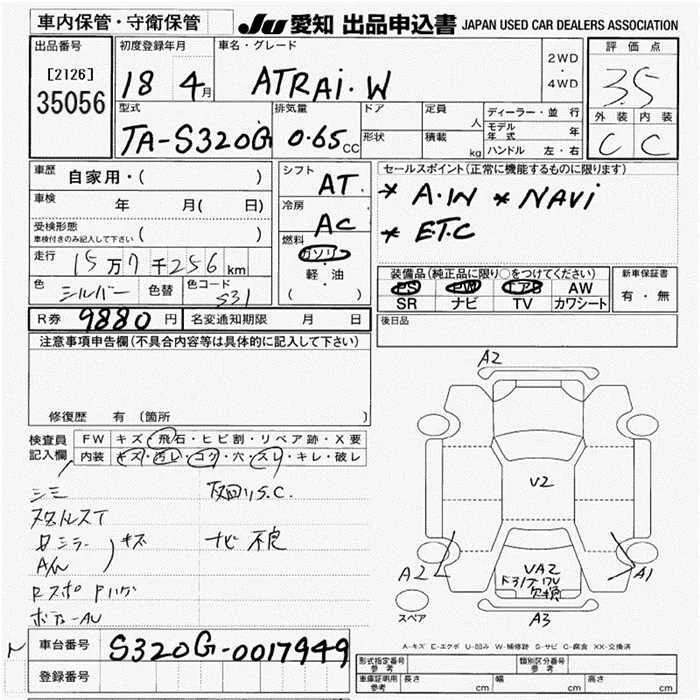 車内保管・守衛保管
JU 愛知 出品申込書 JAPAN USED CAR DEALERS ASSOCIATION
出品番号
[2126]
35056
初度登録年月
18 4月
車名・グレード
ATRAi.W
2WD
・
4WD
評価点
3.5
外装 内装
C C
型式
TA-S320G
排気量
0.65cc
ドア
形状
定員 人
積載 kg
ディーラー・並行
モデル年式 年
ハンドル 左・右
車歴 自家用・( )
車検 年 月( 日)
受検形態
車検付きのみ記入して下さい ( )
走行 15万7千256km
色 シルバー 色替 色コード S31
シフト AT
冷房 AC
燃料
ガソリン
軽・油
( )
セールスポイント(正常に機能するものに限ります)
* A.W * NAVi
* E.T.C
装備品(純正品に限り○をつけてください)
PS PW エアB AW
SR ナビ TV カワシート
新車保証書
有・無
R券 9880円 名変通知期限 月 日
後日品
注意事項申告欄(不具合内容等は具体的に記入して下さい)
修復歴 有 〔箇所 〕
検査員記入欄
FW キズ・飛石・ヒビ割・リペア跡・X要
内装 キズ・汚レ・コゲ・穴・スレ・キレ・破レ
シミ
ナビ 不良
キズ
A2
V2
A2
A1
A3
スペア
A-キズ E-エクボ U-凹み W-補修跡 S-サビ C-腐食 XX-交換済
車台番号 S320G-0017949
登録番号
形式指定番号 参考
類別区分番号 参考
車庫証明用 参考 長さ cm 幅 cm 高さ cm